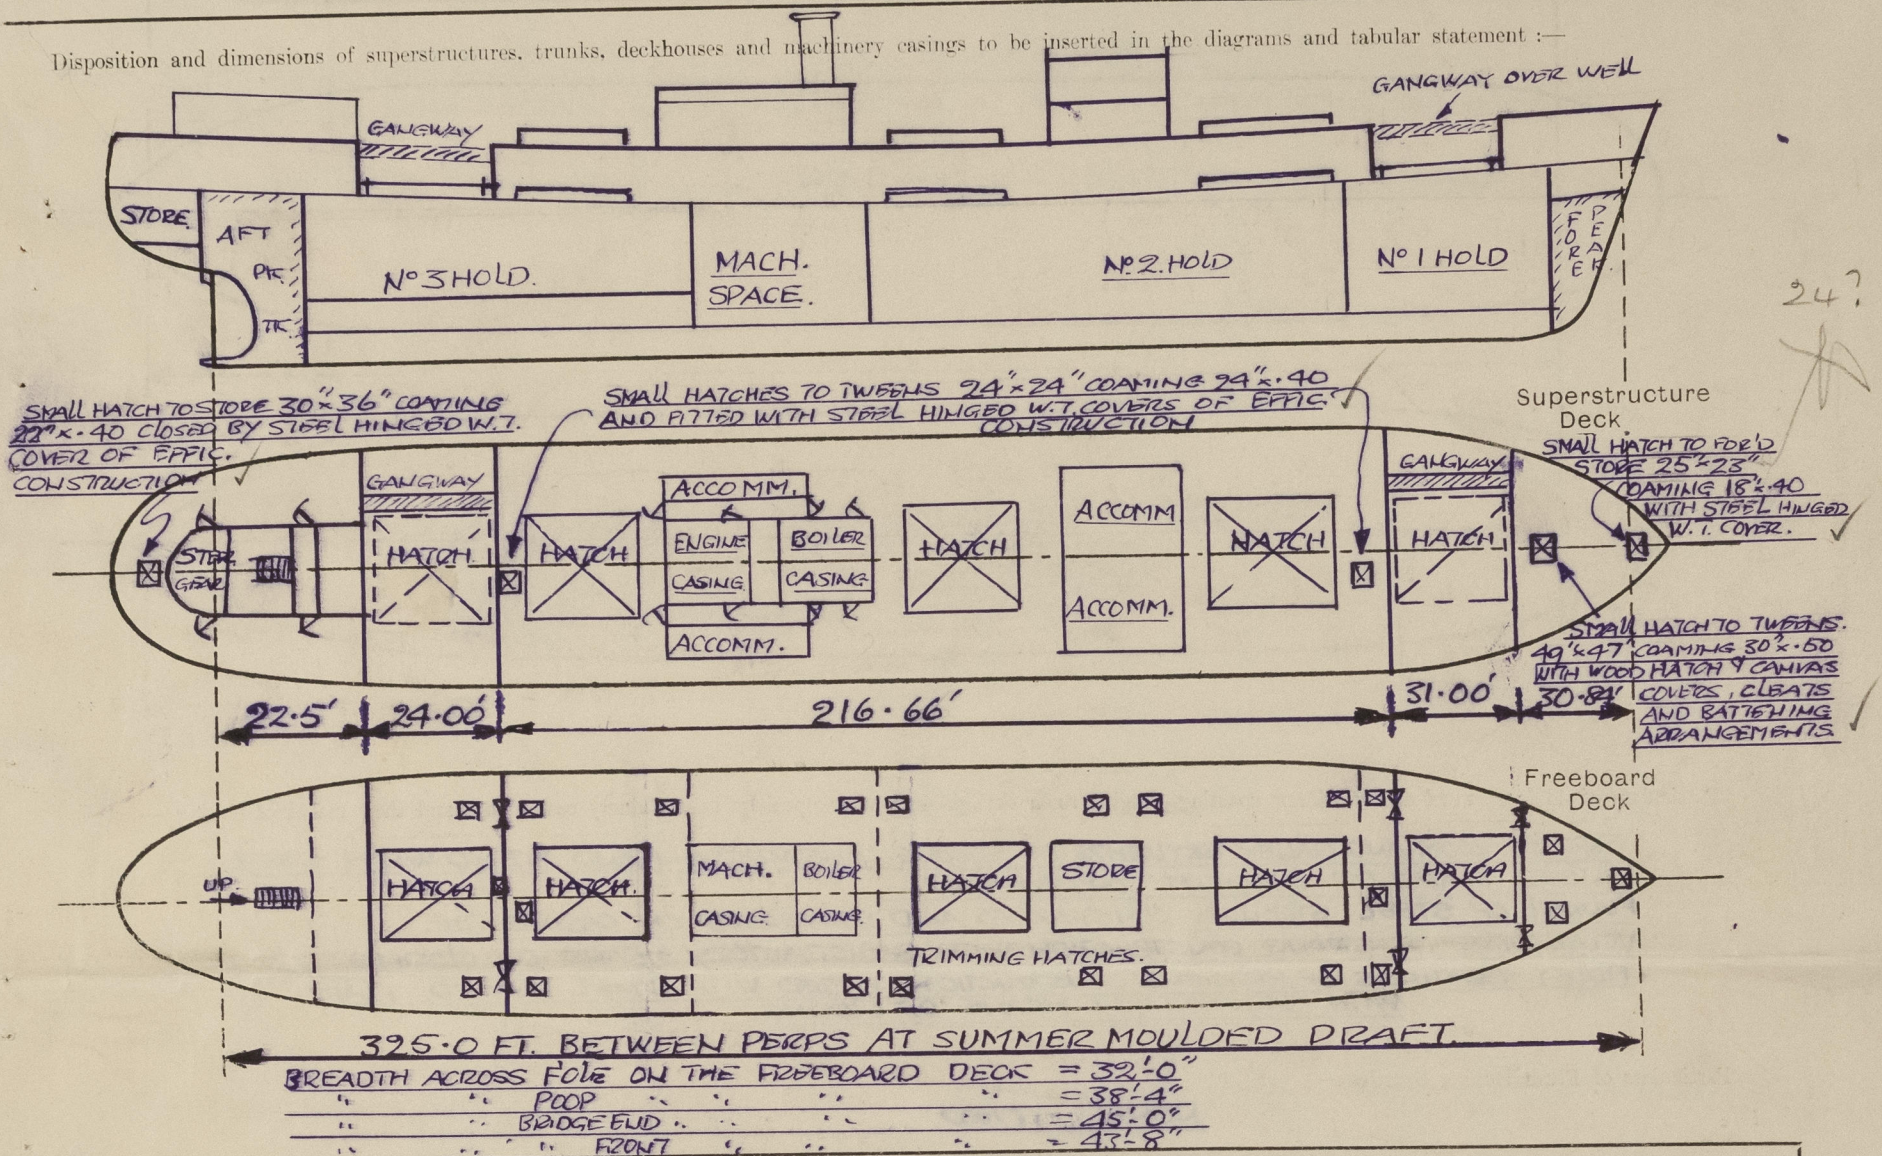 Disposition and dimensions of superstructures, trunks, deckhouses and machinery casings to be inserted in the diagrams and tabular statement :—
GANGWAY OVER WELL
GANGWAY
STORE
AFT
PK.
TK
No 3 HOLD.
MACH.
SPACE.
No 2. HOLD
No 1 HOLD
FORE
PEAK
24?
SMALL HATCH TO STORE 30"x36" COAMING
22"x.40 CLOSED BY STEEL HINGED W.T.
COVER OF EFFIC.
CONSTRUCTION
SMALL HATCHES TO TWEENS 24"x24" COAMING 24"x.40
AND FITTED WITH STEEL HINGED W.T. COVERS OF EFFIC.
CONSTRUCTION
Superstructure
Deck
SMALL HATCH TO FOR'D
STORE 25"x23"
COAMING 18"x.40
WITH STEEL HINGED
W.T. COVER.
GANGWAY
GANGWAY
ACCOMM.
STEER
GEAR
HATCH
HATCH
ENGINE
CASING
BOILER
CASING
HATCH
ACCOMM
ACCOMM.
HATCH
HATCH
ACCOMM.
SMALL HATCH TO TWEENS.
49"x47" COAMING 30"x.50
WITH WOOD HATCH & CANVAS
COVERS, CLEATS
AND BATTENING
ARRANGEMENTS.
22.5'
24.00'
216.66'
31.00'
30.84'
Freeboard
Deck
UP.
HATCH
HATCH.
MACH.
CASING
BOILER
CASING.
HATCH
STORE
HATCH
HATCH
TRIMMING HATCHES.
325.0 FT. BETWEEN PERPS AT SUMMER MOULDED DRAFT.
BREADTH ACROSS FO'C'LE ON THE FREEBOARD DECK = 32'-0"
" " POOP " " " " = 38'-4"
" " BRIDGE END " " " = 45'-0"
" " " FRONT " " = 43'-8"